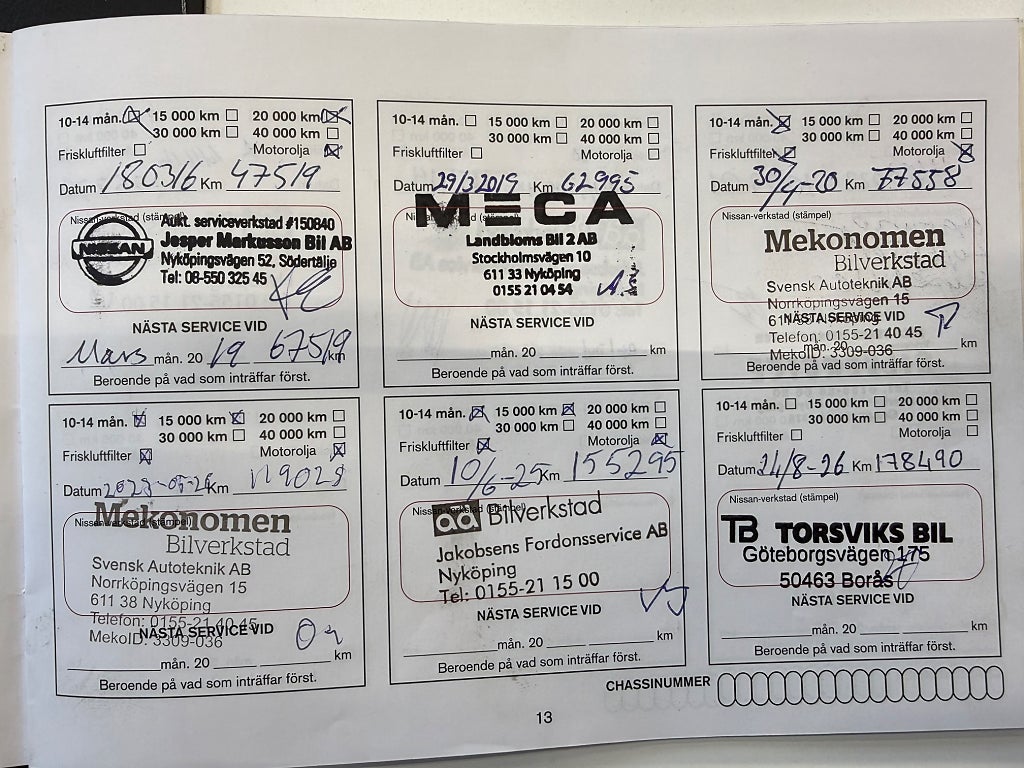 10-14 mån. 15 000 km 20 000 km
30 000 km 40 000 km
Friskluftfilter Motorolja
Datum 180316 Km 47519
Nissan-verkstad (stämpel)
Aukt. serviceverkstad #150840
NISSAN
Jesper Markusson Bil AB
Nyköpingsvägen 52, Södertälje
Tel: 08-550 325 45
NÄSTA SERVICE VID
Mars mån. 2019 67519 km
Beroende på vad som inträffar först.
10-14 mån. 15 000 km 20 000 km
30 000 km 40 000 km
Friskluftfilter Motorolja
Datum 29/3 2019 Km 62995
MECA
Landbloms Bil 2 AB
Stockholmsvägen 10
611 33 Nyköping
0155 21 04 54
NÄSTA SERVICE VID
mån. 20 km
Beroende på vad som inträffar först.
10-14 mån. 15 000 km 20 000 km
30 000 km 40 000 km
Friskluftfilter Motorolja
Datum 30/4-20 Km 77558
Nissan-verkstad (stämpel)
Mekonomen
Bilverkstad
Svensk Autoteknik AB
Norrköpingsvägen 15
NÄSTA SERVICE VID
Telefon: 0155-21 40 45
mån. 20 km
MekoID: 3309-036
Beroende på vad som inträffar först.
10-14 mån. 15 000 km 20 000 km
30 000 km 40 000 km
Friskluftfilter Motorolja
Datum Km
Nissan-verkstad (stämpel)
Mekonomen
Bilverkstad
Svensk Autoteknik AB
Norrköpingsvägen 15
611 38 Nyköping
Telefon: 0155-21 40 45
NÄSTA SERVICE VID
MekoID: 3309-036
mån. 20 km
Beroende på vad som inträffar först.
10-14 mån. 15 000 km 20 000 km
30 000 km 40 000 km
Friskluftfilter Motorolja
Datum 10/6-25 Km 155295
Nissan-verkstad (stämpel)
ad Bilverkstad
Jakobsens Fordonsservice AB
Nyköping
Tel: 0155-21 15 00
NÄSTA SERVICE VID
mån. 20 km
Beroende på vad som inträffar först.
10-14 mån. 15 000 km 20 000 km
30 000 km 40 000 km
Friskluftfilter Motorolja
Datum 24/8-26 Km 178490
Nissan-verkstad (stämpel)
TB TORSVIKS BIL
Göteborgsvägen 175
50463 Borås
NÄSTA SERVICE VID
mån. 20 km
Beroende på vad som inträffar först.
CHASSINUMMER
13